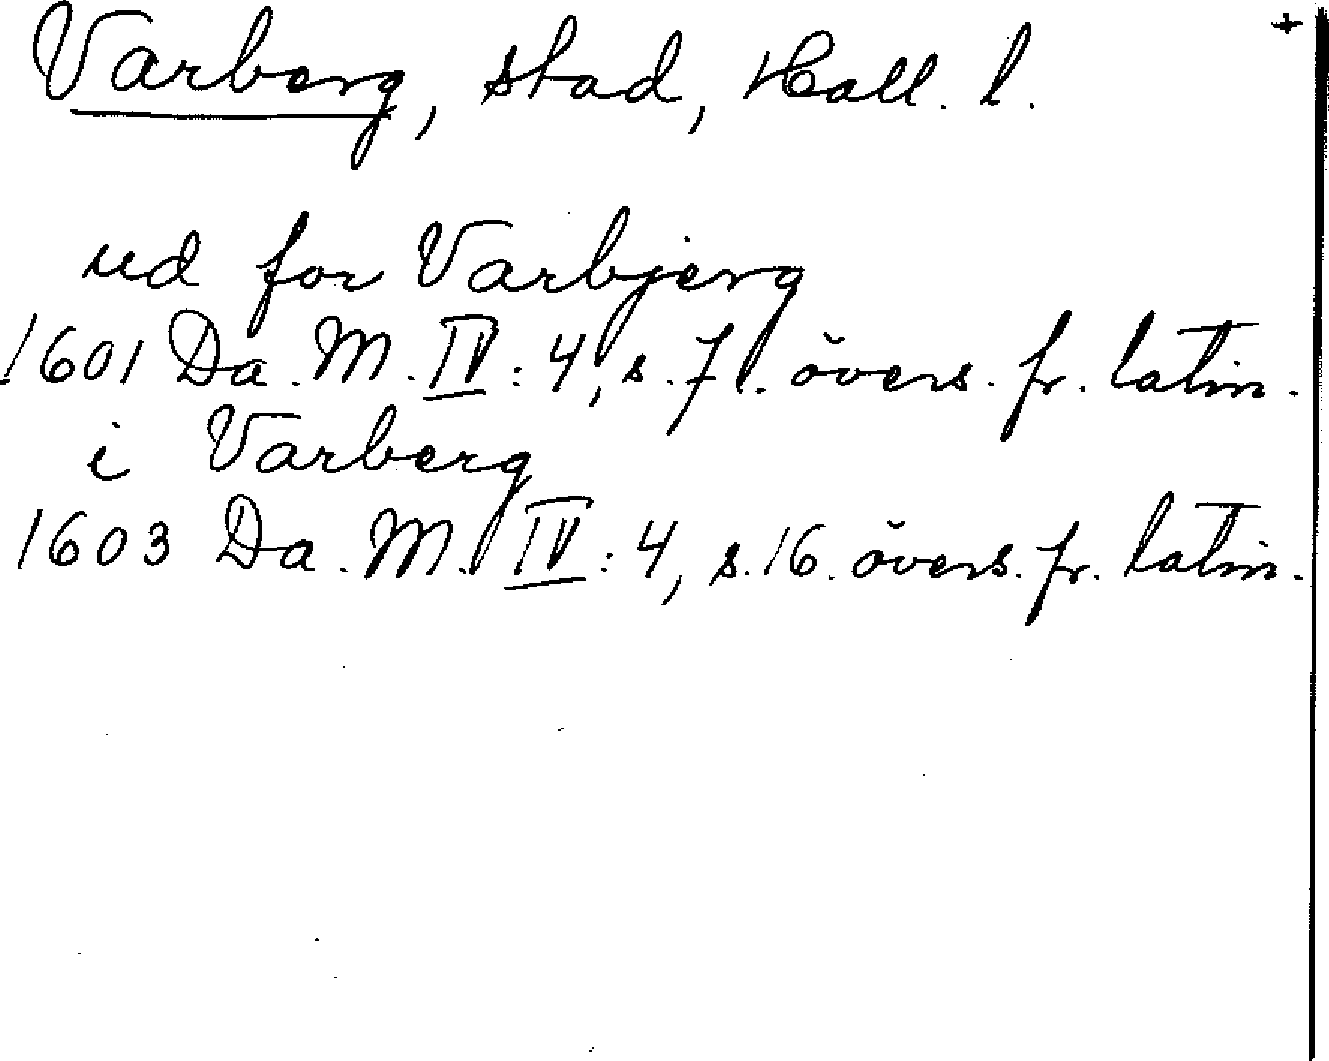 Varberg, stad, Hall. l. +
ud for Varbjerg
1601 Da. M. IV: 4, s. 7. övers. fr. latin.
i Varberg
1603 Da. M. IV: 4, s. 16. övers. fr. latin.